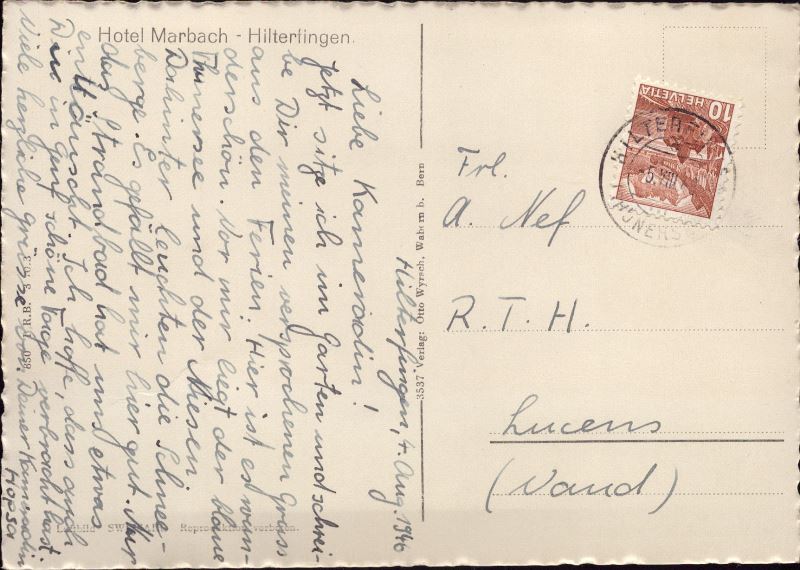 Hotel Marbach - Hilterfingen.
Hilterfingen, 4. Aug. 1946
Liebe Kameradin!
Jetzt sitze ich im Garten und schrei-
be Dir meinen versprochenen Gruss
aus den Ferien. Hier ist es wun-
derschön. Vor mir liegt der blaue
Thunersee und der Niesen
Dahinter leuchten die Schnee-
berge. Es gefällt mir hier gut. Nur
das Strandbad hat uns etwas
enttäuscht. Ich hoffe, dass auch
Du in Genf schöne Tage verbracht hast.
Viele herzliche Grüsse von Deiner Kameradin
HOPSA
3537 Verlag: Otto Wyrsch, Wabern b. Bern
HELVETIA
10
HILTERF
5. VIII
Frl.
A. Nef
R. T. H.
Lucens
(Vaud)
Reproduktion verboten.